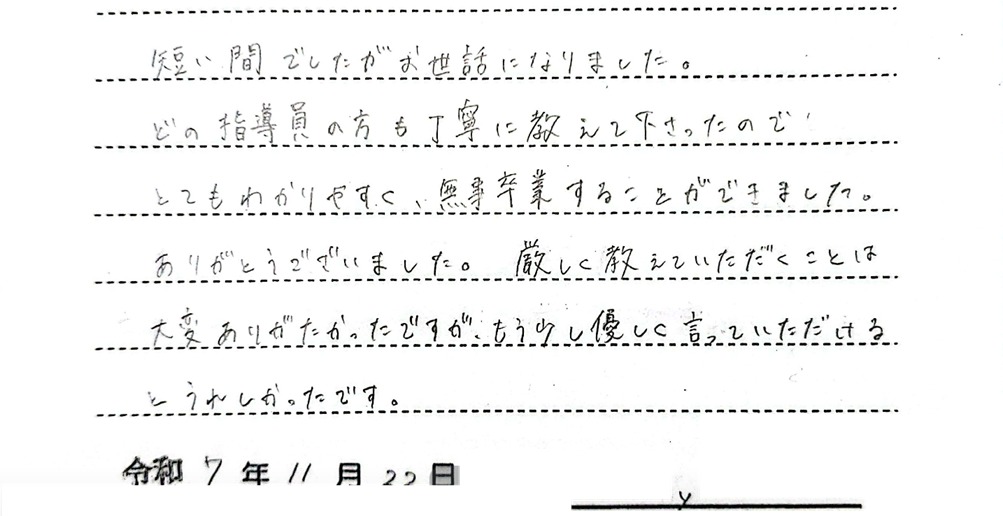 短い間でしたがお世話になりました。
どの指導員の方も丁寧に教えて下さったので
とてもわかりやすく、無事卒業することができました。
ありがとうございました。 厳しく教えていただくことは
大変ありがたかったですが、もう少し優しく言っていただける
とうれしかったです。
令和 7 年 11 月 22 日